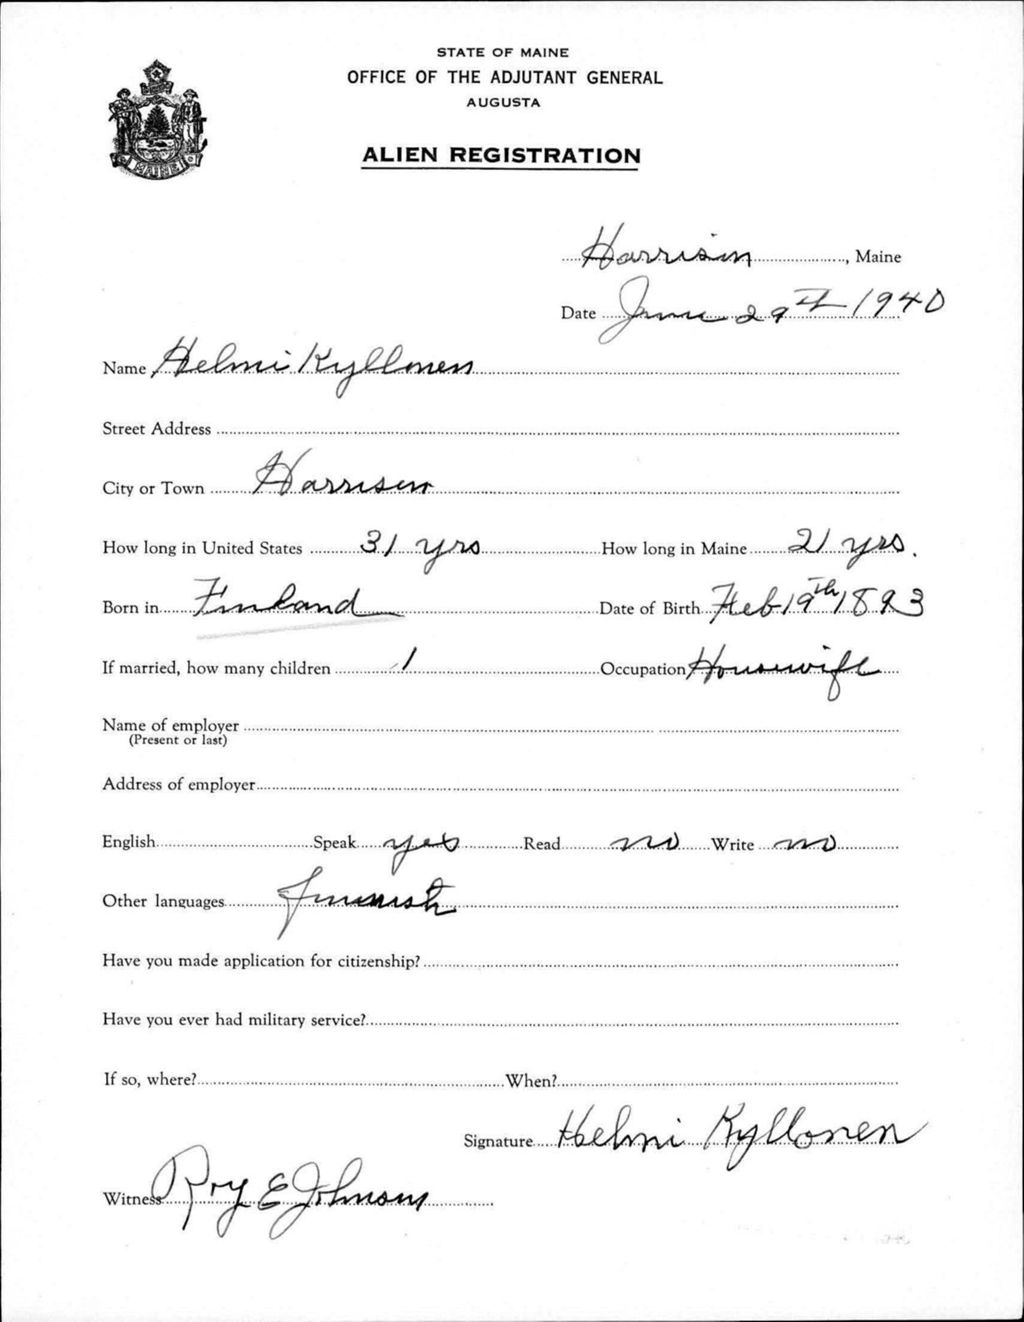 STATE OF MAINE
OFFICE OF THE ADJUTANT GENERAL
AUGUSTA
ALIEN REGISTRATION
MAINE
Harrison, Maine
Date June 29th 1940
Name Helmi Kyllonen
Street Address
City or Town Harrison
How long in United States 31 yrs How long in Maine 21 yrs.
Born in Finland Date of Birth Feb 19th 1893
If married, how many children 1 Occupation Housewife
Name of employer
(Present or last)
Address of employer
English Speak yes Read no Write no
Other languages Finnish
Have you made application for citizenship?
Have you ever had military service?
If so, where? When?
Signature Helmi Kyllonen
Witness Roy E Johnson